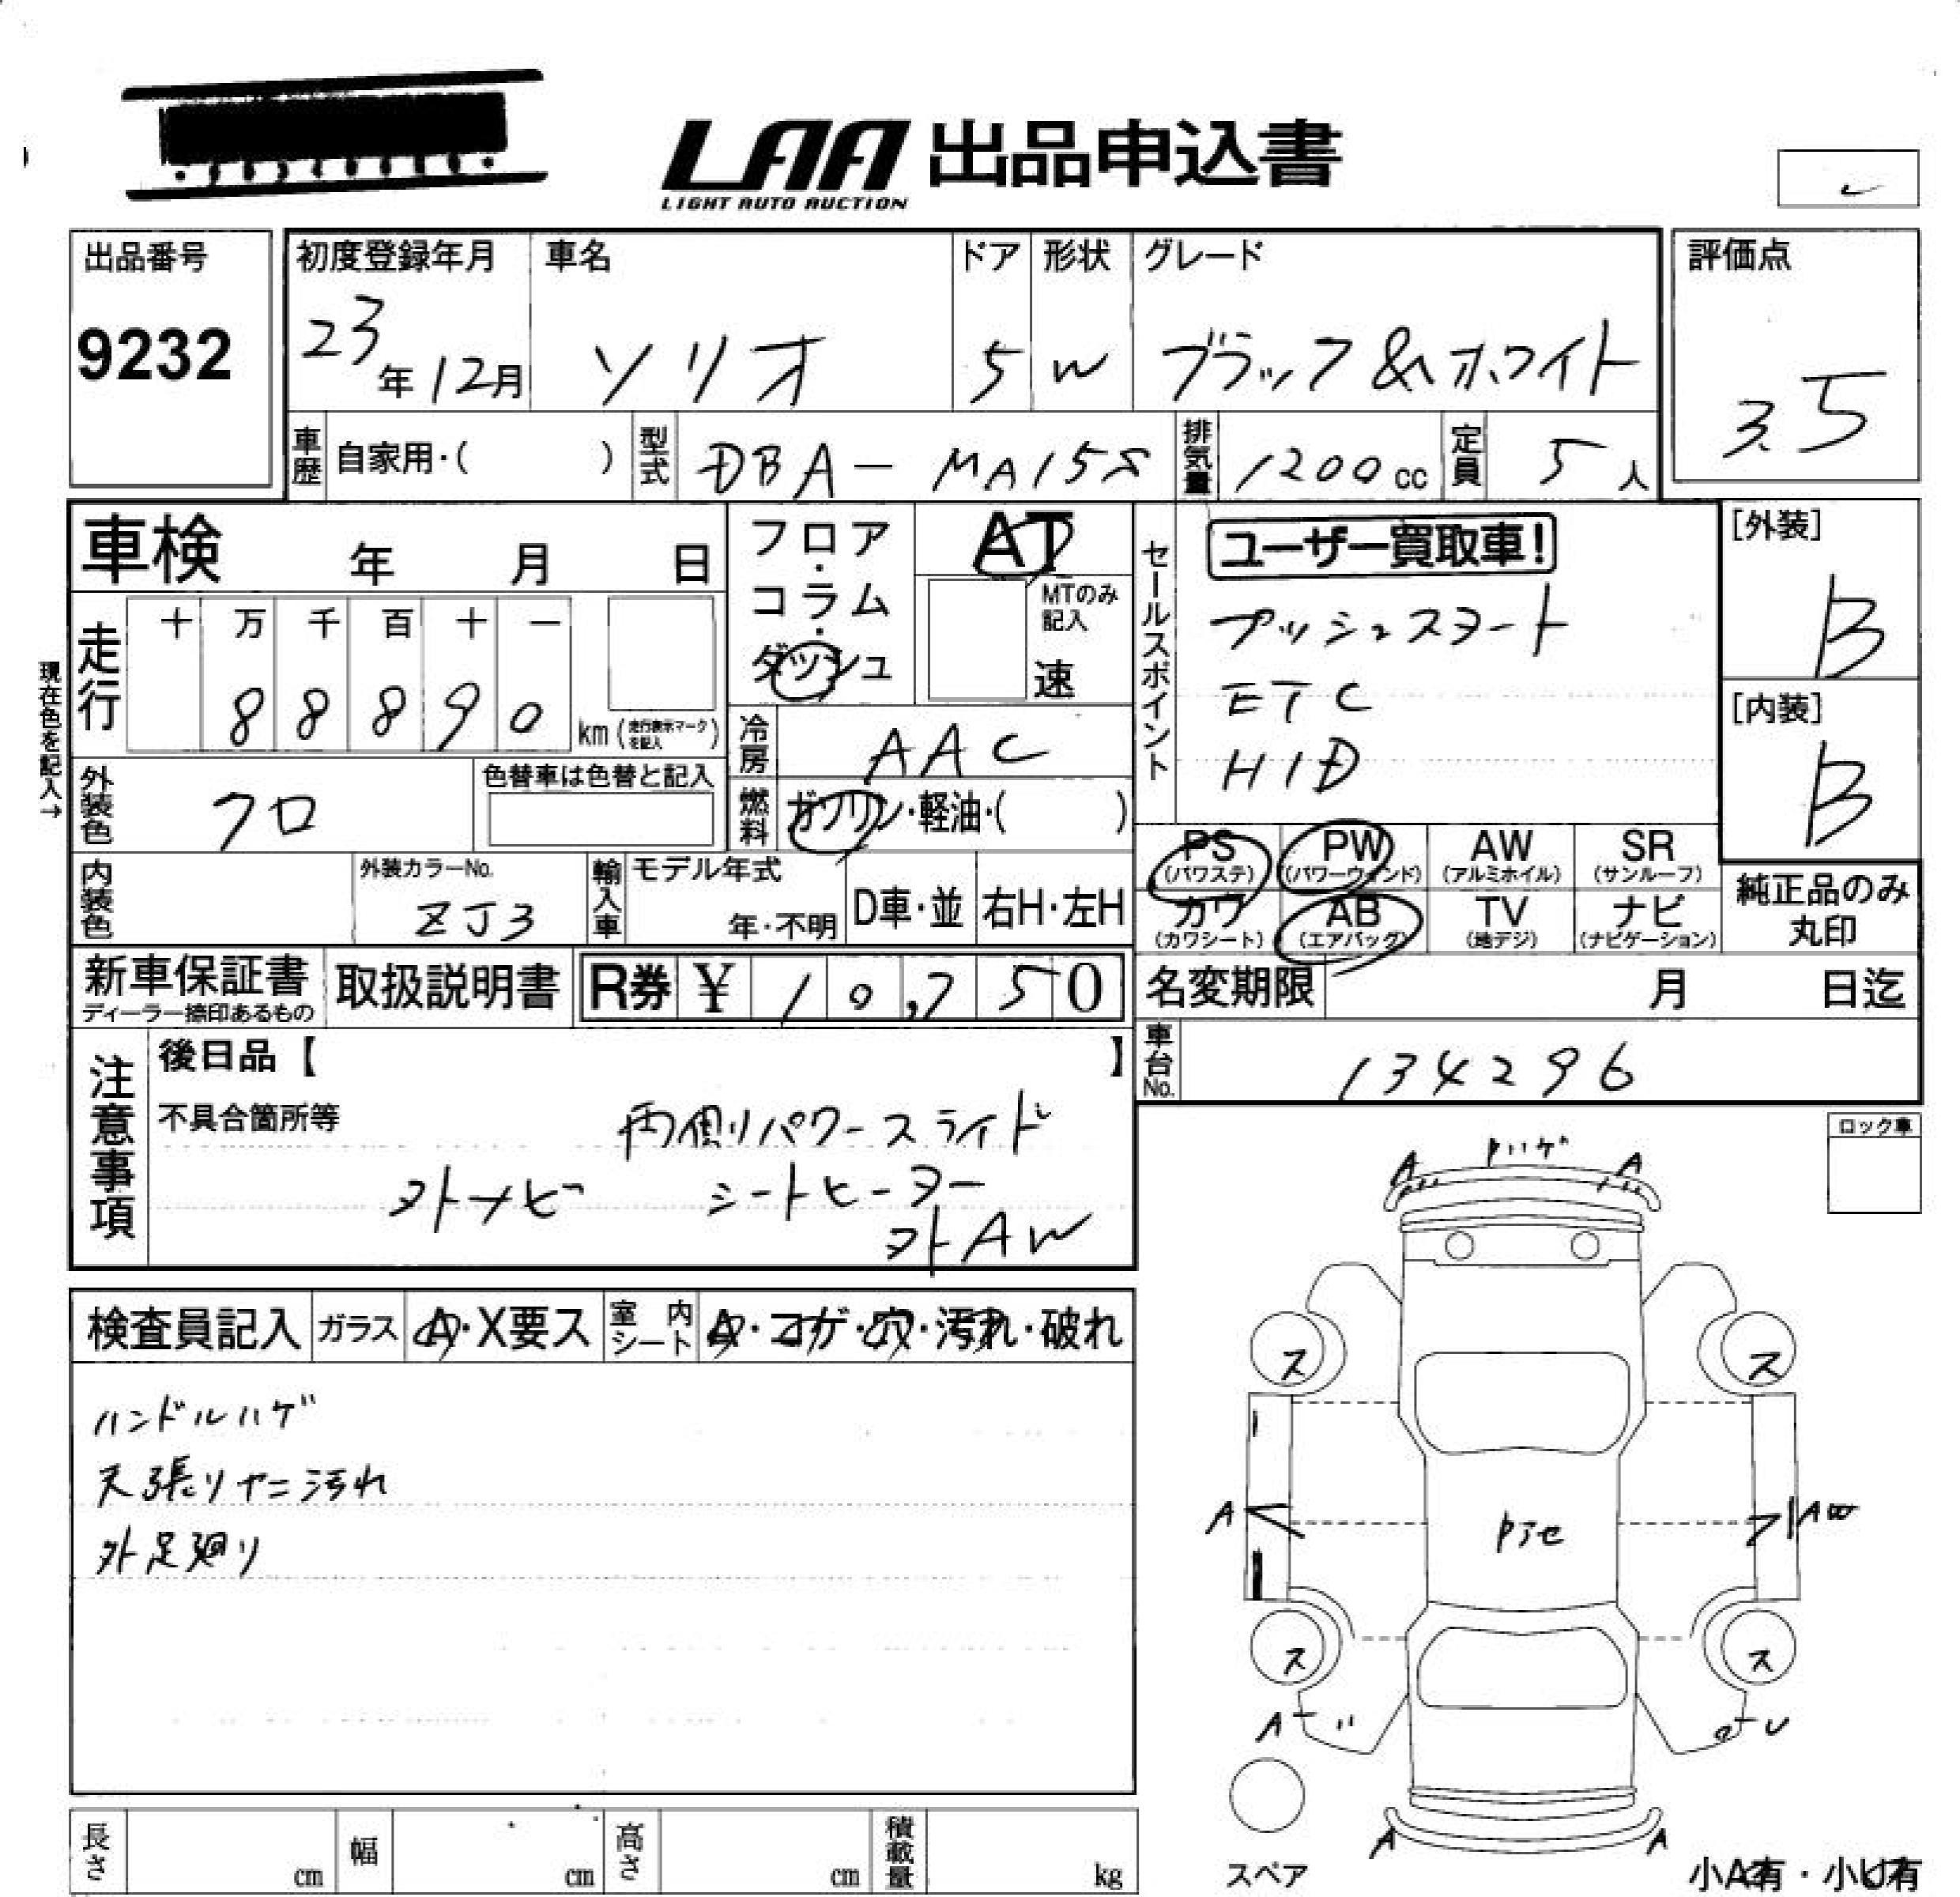 LAA 出品申込書
LIGHT AUTO AUCTION
出品番号
9232
初度登録年月
23年12月
車名
ソリオ
ドア
5
形状
W
グレード
ブラック&ホワイト
評価点
3.5
車歴 自家用・( )
型式 DBA-MA15S
排気量 1200cc
定員 5人
車検 年 月 日
フロア・コラム・ダッシュ
AT
MTのみ記入
速
セールスポイント
ユーザー買取車!
プッシュスタート
ETC
HID
[外装]
B
[内装]
B
現在色を記入→
走行
十 万 千 百 十 一
8 8 8 9 0
km(走行表示マークを記入)
冷房 AAC
外装色 クロ
色替車は色替と記入
燃料 ガソリン・軽油・( )
PS (パワステ)
PW (パワーウインド)
AW (アルミホイル)
SR (サンルーフ)
カワ (カワシート)
AB (エアバッグ)
TV (地デジ)
ナビ (ナビゲーション)
純正品のみ丸印
内装色
外装カラーNo.
ZJ3
輸入車
モデル年式
年・不明
D車・並
右H・左H
新車保証書
ディーラー捺印あるもの
取扱説明書
R券 ¥ 10,750
名変期限 月 日迄
車台No. 134296
注意事項
後日品【 】
不具合箇所等
両側リパワースライド
外ナビ シートヒーター
外AW
ロック車
検査員記入
ガラス A・X要ス
室内シート A・コゲ・穴・汚れ・破れ
ハンドルハゲ
天張りヤニ汚れ
外足廻り
Pハゲ
A A
ス ス
A AW
Pアセ
ス ス
A
A A
スペア
小A有・小U有
長さ cm
幅 cm
高さ cm
積載量 kg